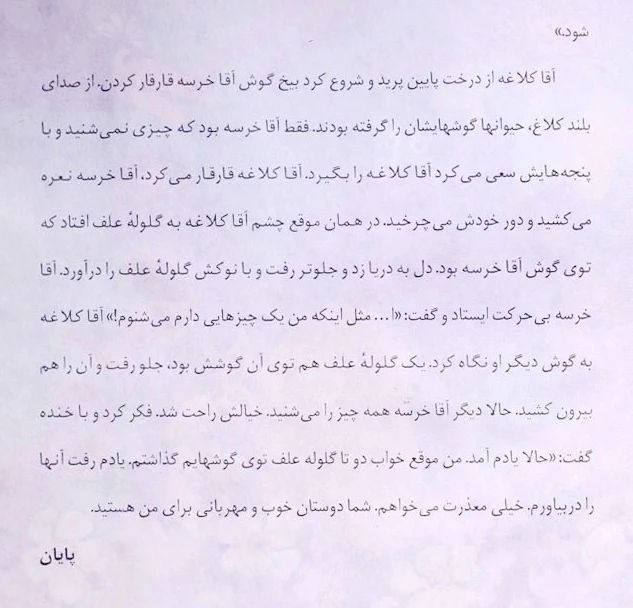 شود.»
آقا کلاغه از درخت پایین پرید و شروع کرد بیخ گوش آقا خرسه قارقار کردن. از صدای
بلند کلاغ، حیوانها گوشهایشان را گرفته بودند. فقط آقا خرسه بود که چیزی نمی‌شنید و با
پنجه‌هایش سعی می‌کرد آقا کلاغه را بگیرد. آقا کلاغه قارقار می‌کرد، آقا خرسه نعره
می‌کشید و دور خودش می‌چرخید. در همان موقع چشم آقا کلاغه به گلولهٔ علف افتاد که
توی گوش آقا خرسه بود. دل به دریا زد و جلوتر رفت و با نوکش گلولهٔ علف را درآورد. آقا
خرسه بی‌حرکت ایستاد و گفت: «ا... مثل اینکه من یک چیزهایی دارم می‌شنوم!» آقا کلاغه
به گوش دیگر او نگاه کرد. یک گلولهٔ علف هم توی آن گوشش بود، جلو رفت و آن را هم
بیرون کشید. حالا دیگر آقا خرسه همه چیز را می‌شنید. خیالش راحت شد. فکر کرد و با خنده
گفت: «حالا یادم آمد. من موقع خواب دو تا گلوله علف توی گوشهایم گذاشتم. یادم رفت آنها
را دربیاورم. خیلی معذرت می‌خواهم. شما دوستان خوب و مهربانی برای من هستید.
پایان